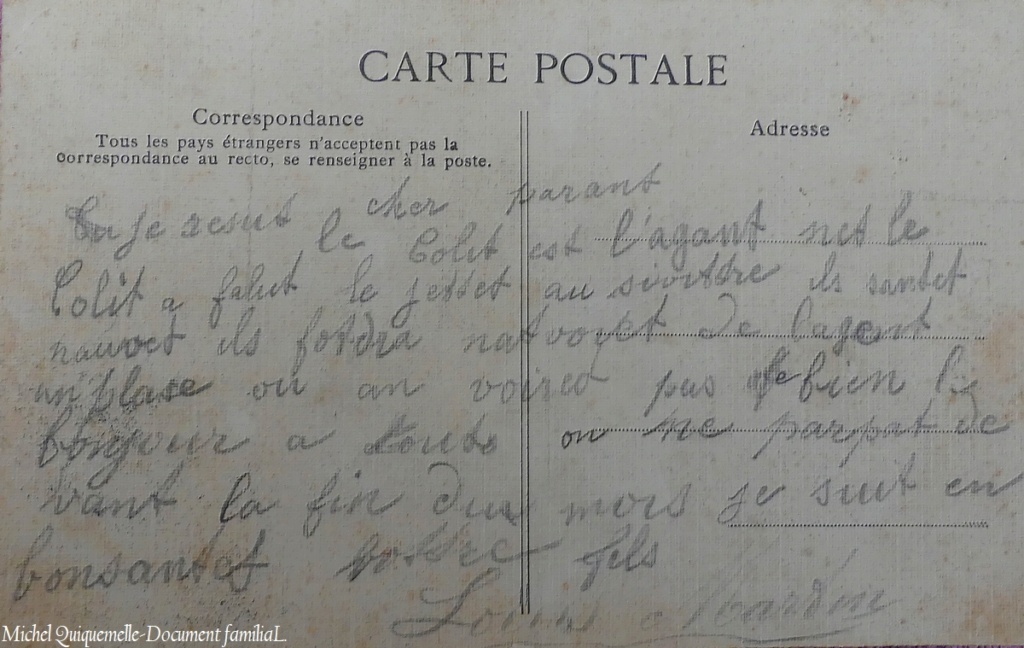 CARTE POSTALE
Correspondance
Tous les pays étrangers n'acceptent pas la
correspondance au recto, se renseigner à la poste.
Adresse
cher parant
Je resut le Colit est l'agant net le
Colit a falut le jettet au sivittre ils santet
nauvet ils fotdra natvoyet de lagent
un plase ou an voiret pas Je bien le
bonjour a touts on ne parpat de
vant la fin dus mois je suit en
bonsantet vottre fils
Louis Mardin
Michel Quiquemelle-Document familiaL.